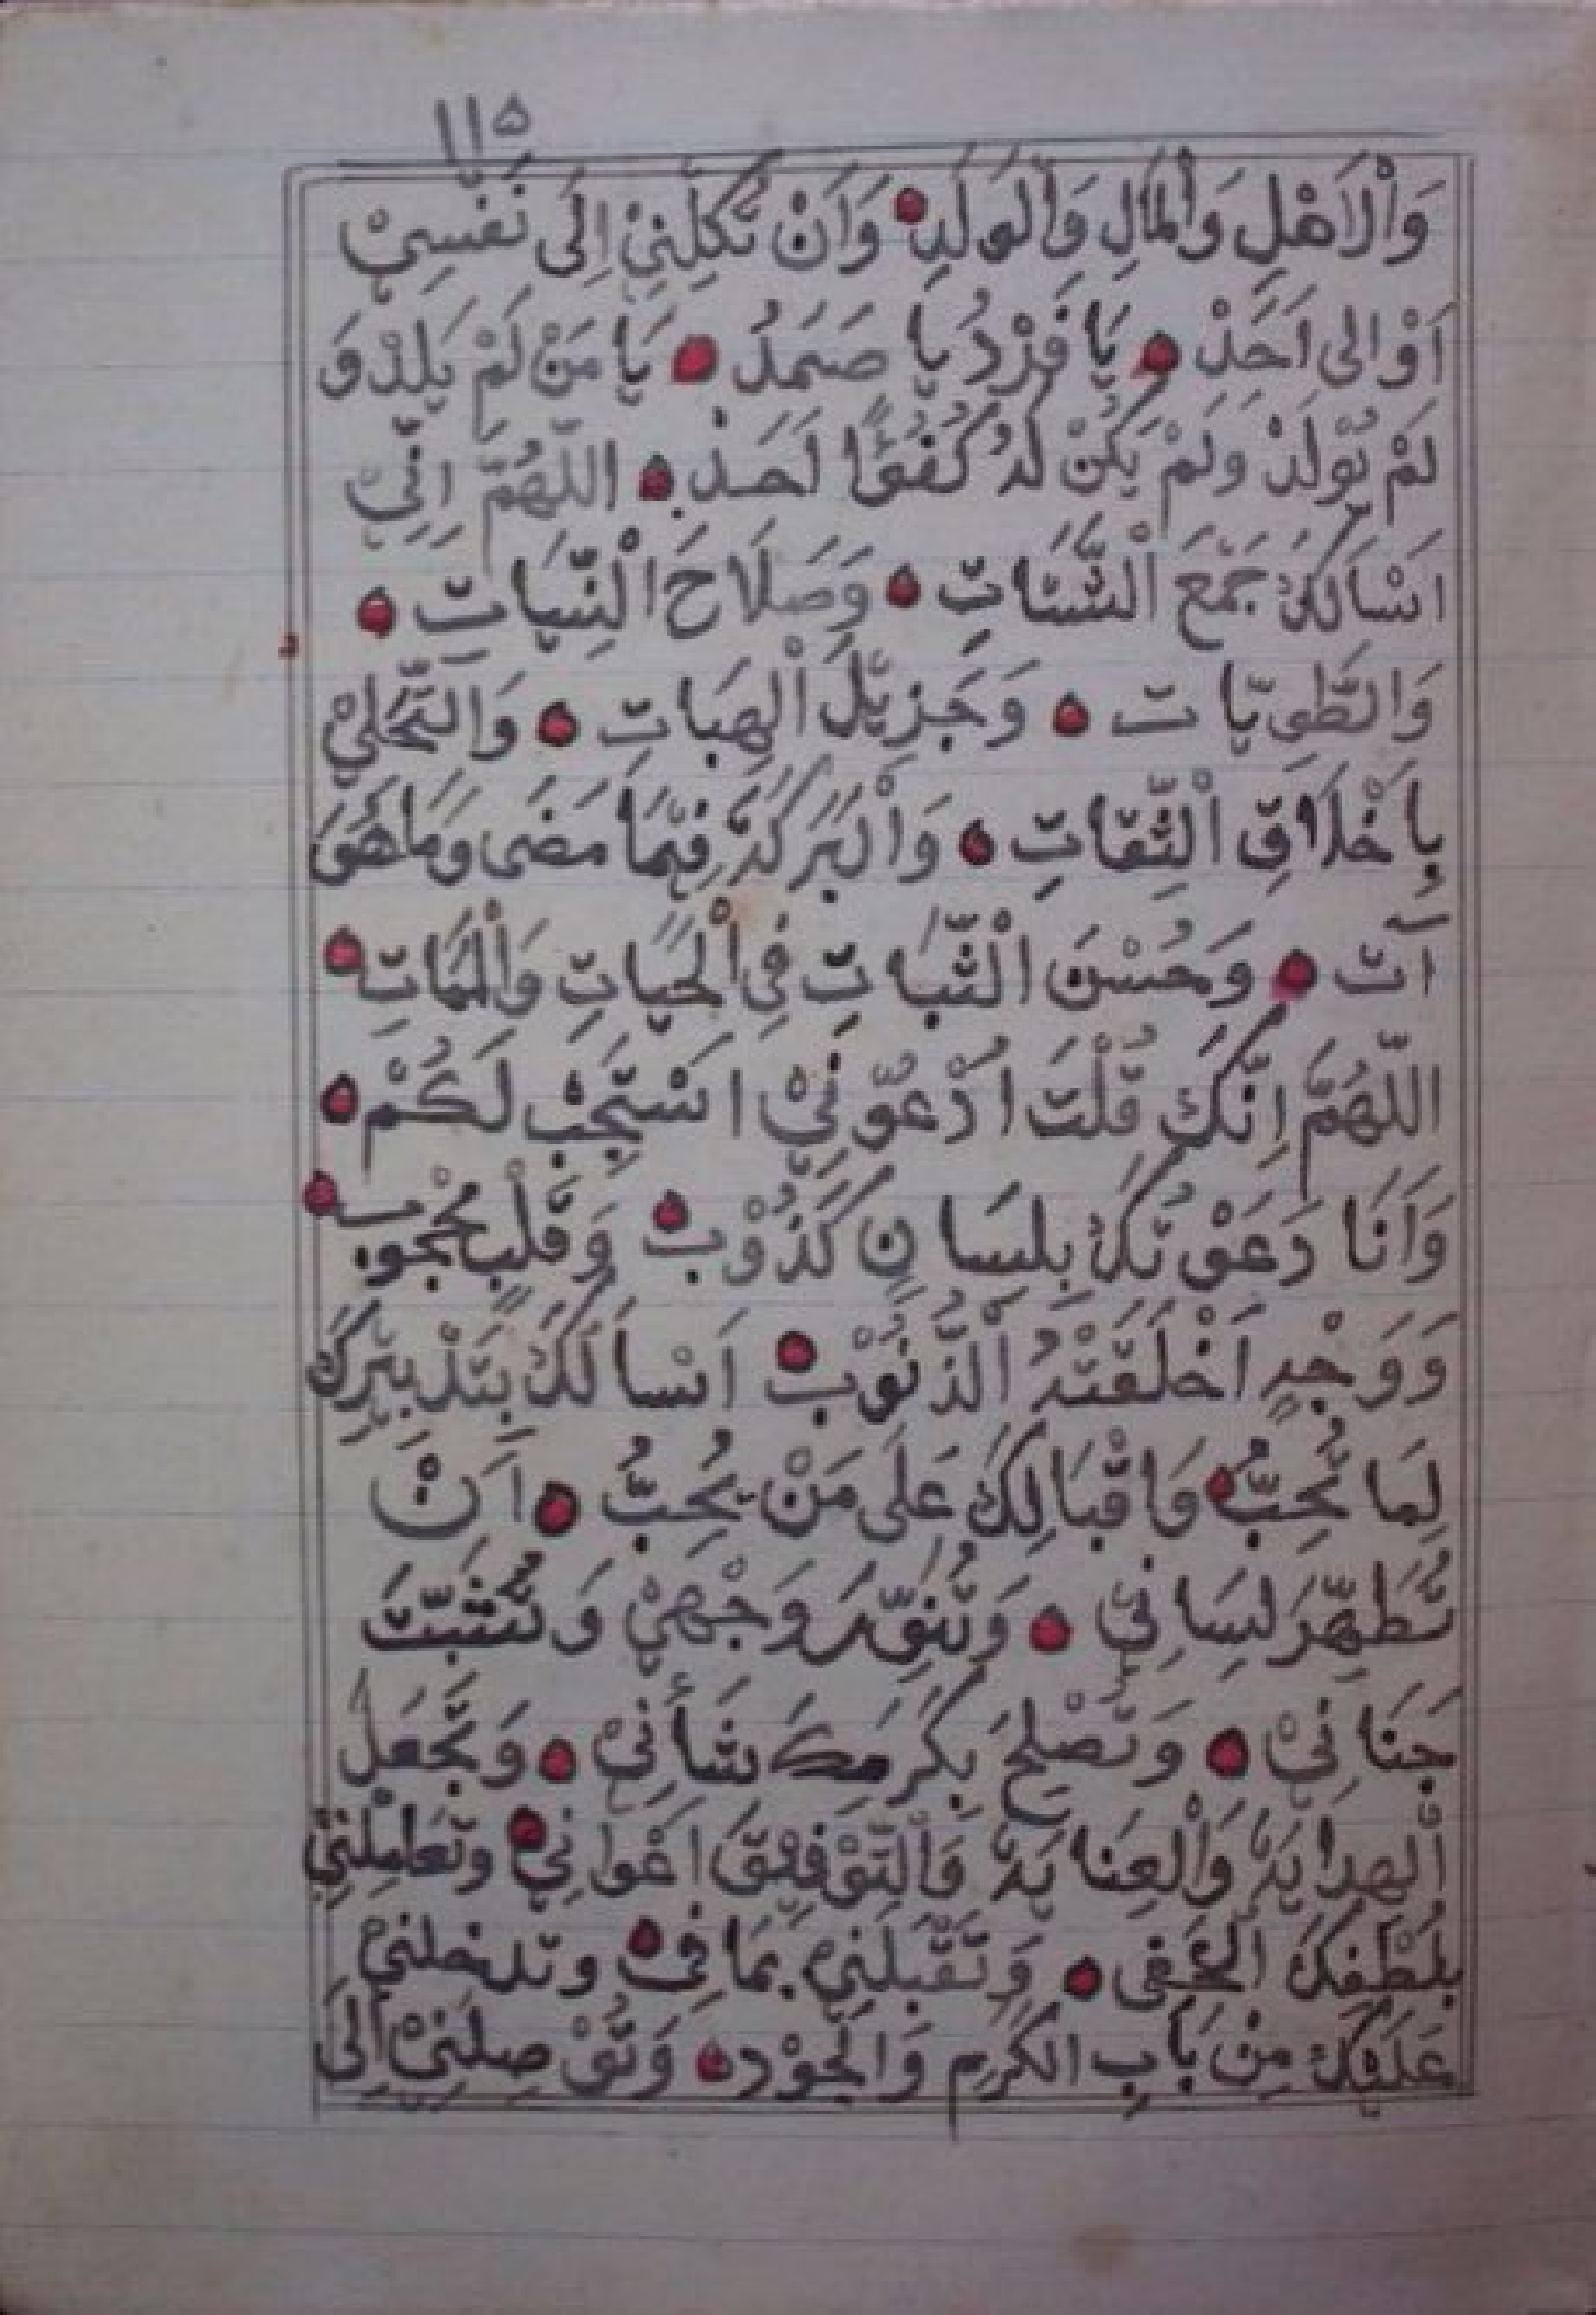 ١١۵
وَالْاَهْلِ وَالْمَالِ وَالْوَلَدِ وَاَنْ تَكِلَنِيْ اِلَى نَفْسِيْ
اَوْ الى اَحَدْ يَا فَرْدُ يَا صَمَدُ يَا مَنْ لَمْ يَلِدْ وَ
لَمْ يُوْلَدْ وَلَمْ يَكُنْ لَهُ كُفُوًا اَحَدْ اللّٰهُمَّ اِنِّيْ
اَسْاَلُكَ جَمْعَ الْشَّتَاتِ وَصَلَاحَ الْنِّيَاتِ
وَالطَّوِيَّات وَجَزِيْلَ الْهِبَاتِ وَالتَّحَلِيْ
بِاَخْلَاقِ الْثِّقَاتِ وَالْبَرَكَةَ فِيْمَا مَضَى وَمَا هُوَ
آت وَحُسْنَ الْثَّبَاتِ فِي الْحَيَاتِ وَالْمَمَاتِ
اللّٰهُمَّ اِنَّكَ قُلْتَ اُدْعُوْنِيْ اَسْتَجِبْ لَكُمْ
وَاَنَا دَعَوْتُكَ بِلِسَانٍ كَذُوْبْ وَقَلْبٍ مَحْجُوبْ
وَوَجْهٍ اَخْلَقَتْهُ الْذُّنُوْبْ اَسْاَلُكَ بِتَدْبِيْرِكَ
لِمَا تُحِبُّ وَاقْبَالِكَ عَلَى مَنْ يُحِبُّ اَنْ
تُطَهِّرَ لِسَانِيْ وَتُنَوِّرَ وَجْهِيْ وَتُثَبِّتَ
جَنَانِيْ وَتُصْلِحَ بِكَرَمِكَ شَأْنِيْ وَتَجْعَلَ
الْهِدَايَةَ وَالْعِنَايَةَ وَالْتَّوْفِيْقَ اَعْوَانِيْ وتعَامِلْنِيْ
بِلُطْفِكَ الْخَفِى وَتَقْبَلَنِيْ بِمَا فِىْ وتدخلنيْ
عَلَيْكَ مِنْ بَابِ الكَرَمِ وَالْجُوْدِ وَتُوْصِلَنِيْ اِلَى